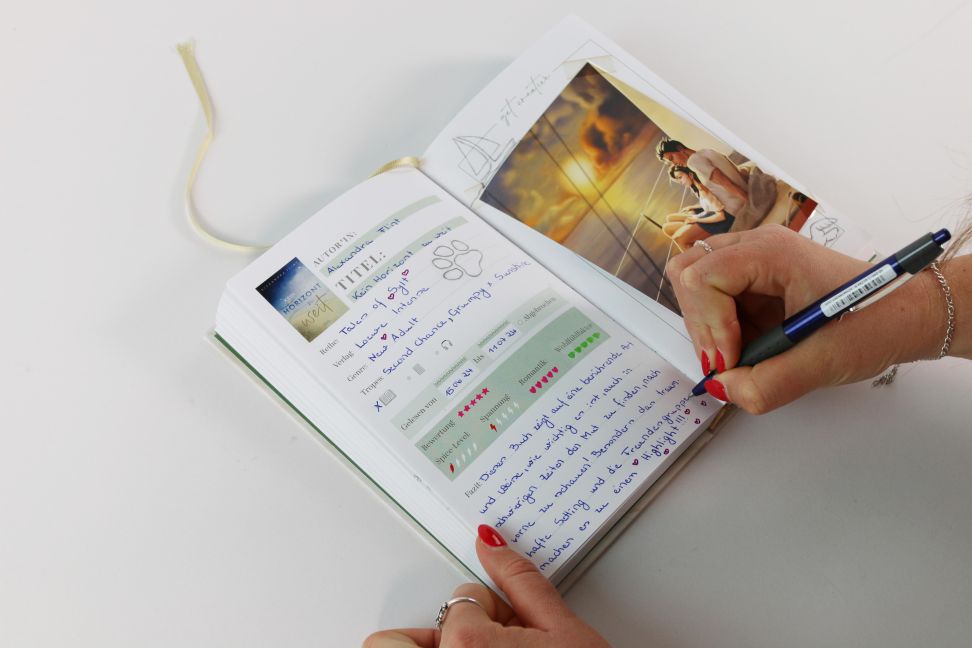 AUTOR*IN:
Alexandra Flint
TITEL:
Kein Horizont zu weit
HORIZONT
zu
weit
Reihe: Tales of Sylt
Verlag: Loewe Intense
Genre: New Adult
Tropes: Second Chance, Grumpy x Sunshine
X
Gelesen von 15.06.24 bis 19.07.24 Abgebrochen
Bewertung Spannung Romantik Wohlfühlfaktor
Spice-Level
Fazit: Dieses Buch zeigt auf eine berührende Art
und Weise, wie wichtig es ist, auch in
schwierigen Zeiten den Mut zu finden, nach
vorne zu schauen! Besonders das traum-
hafte Setting und die Freundesgruppe
machen es zu einem Highlight!!!
get creative